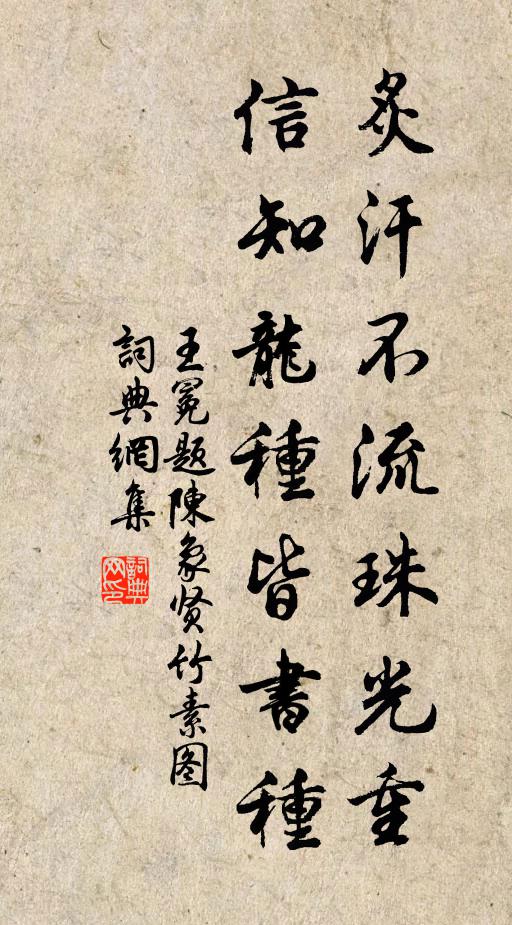 炙汗不流珠光重
信知龍種皆書種
王冕題陳象贤竹素图
詞典網集
詞典網印